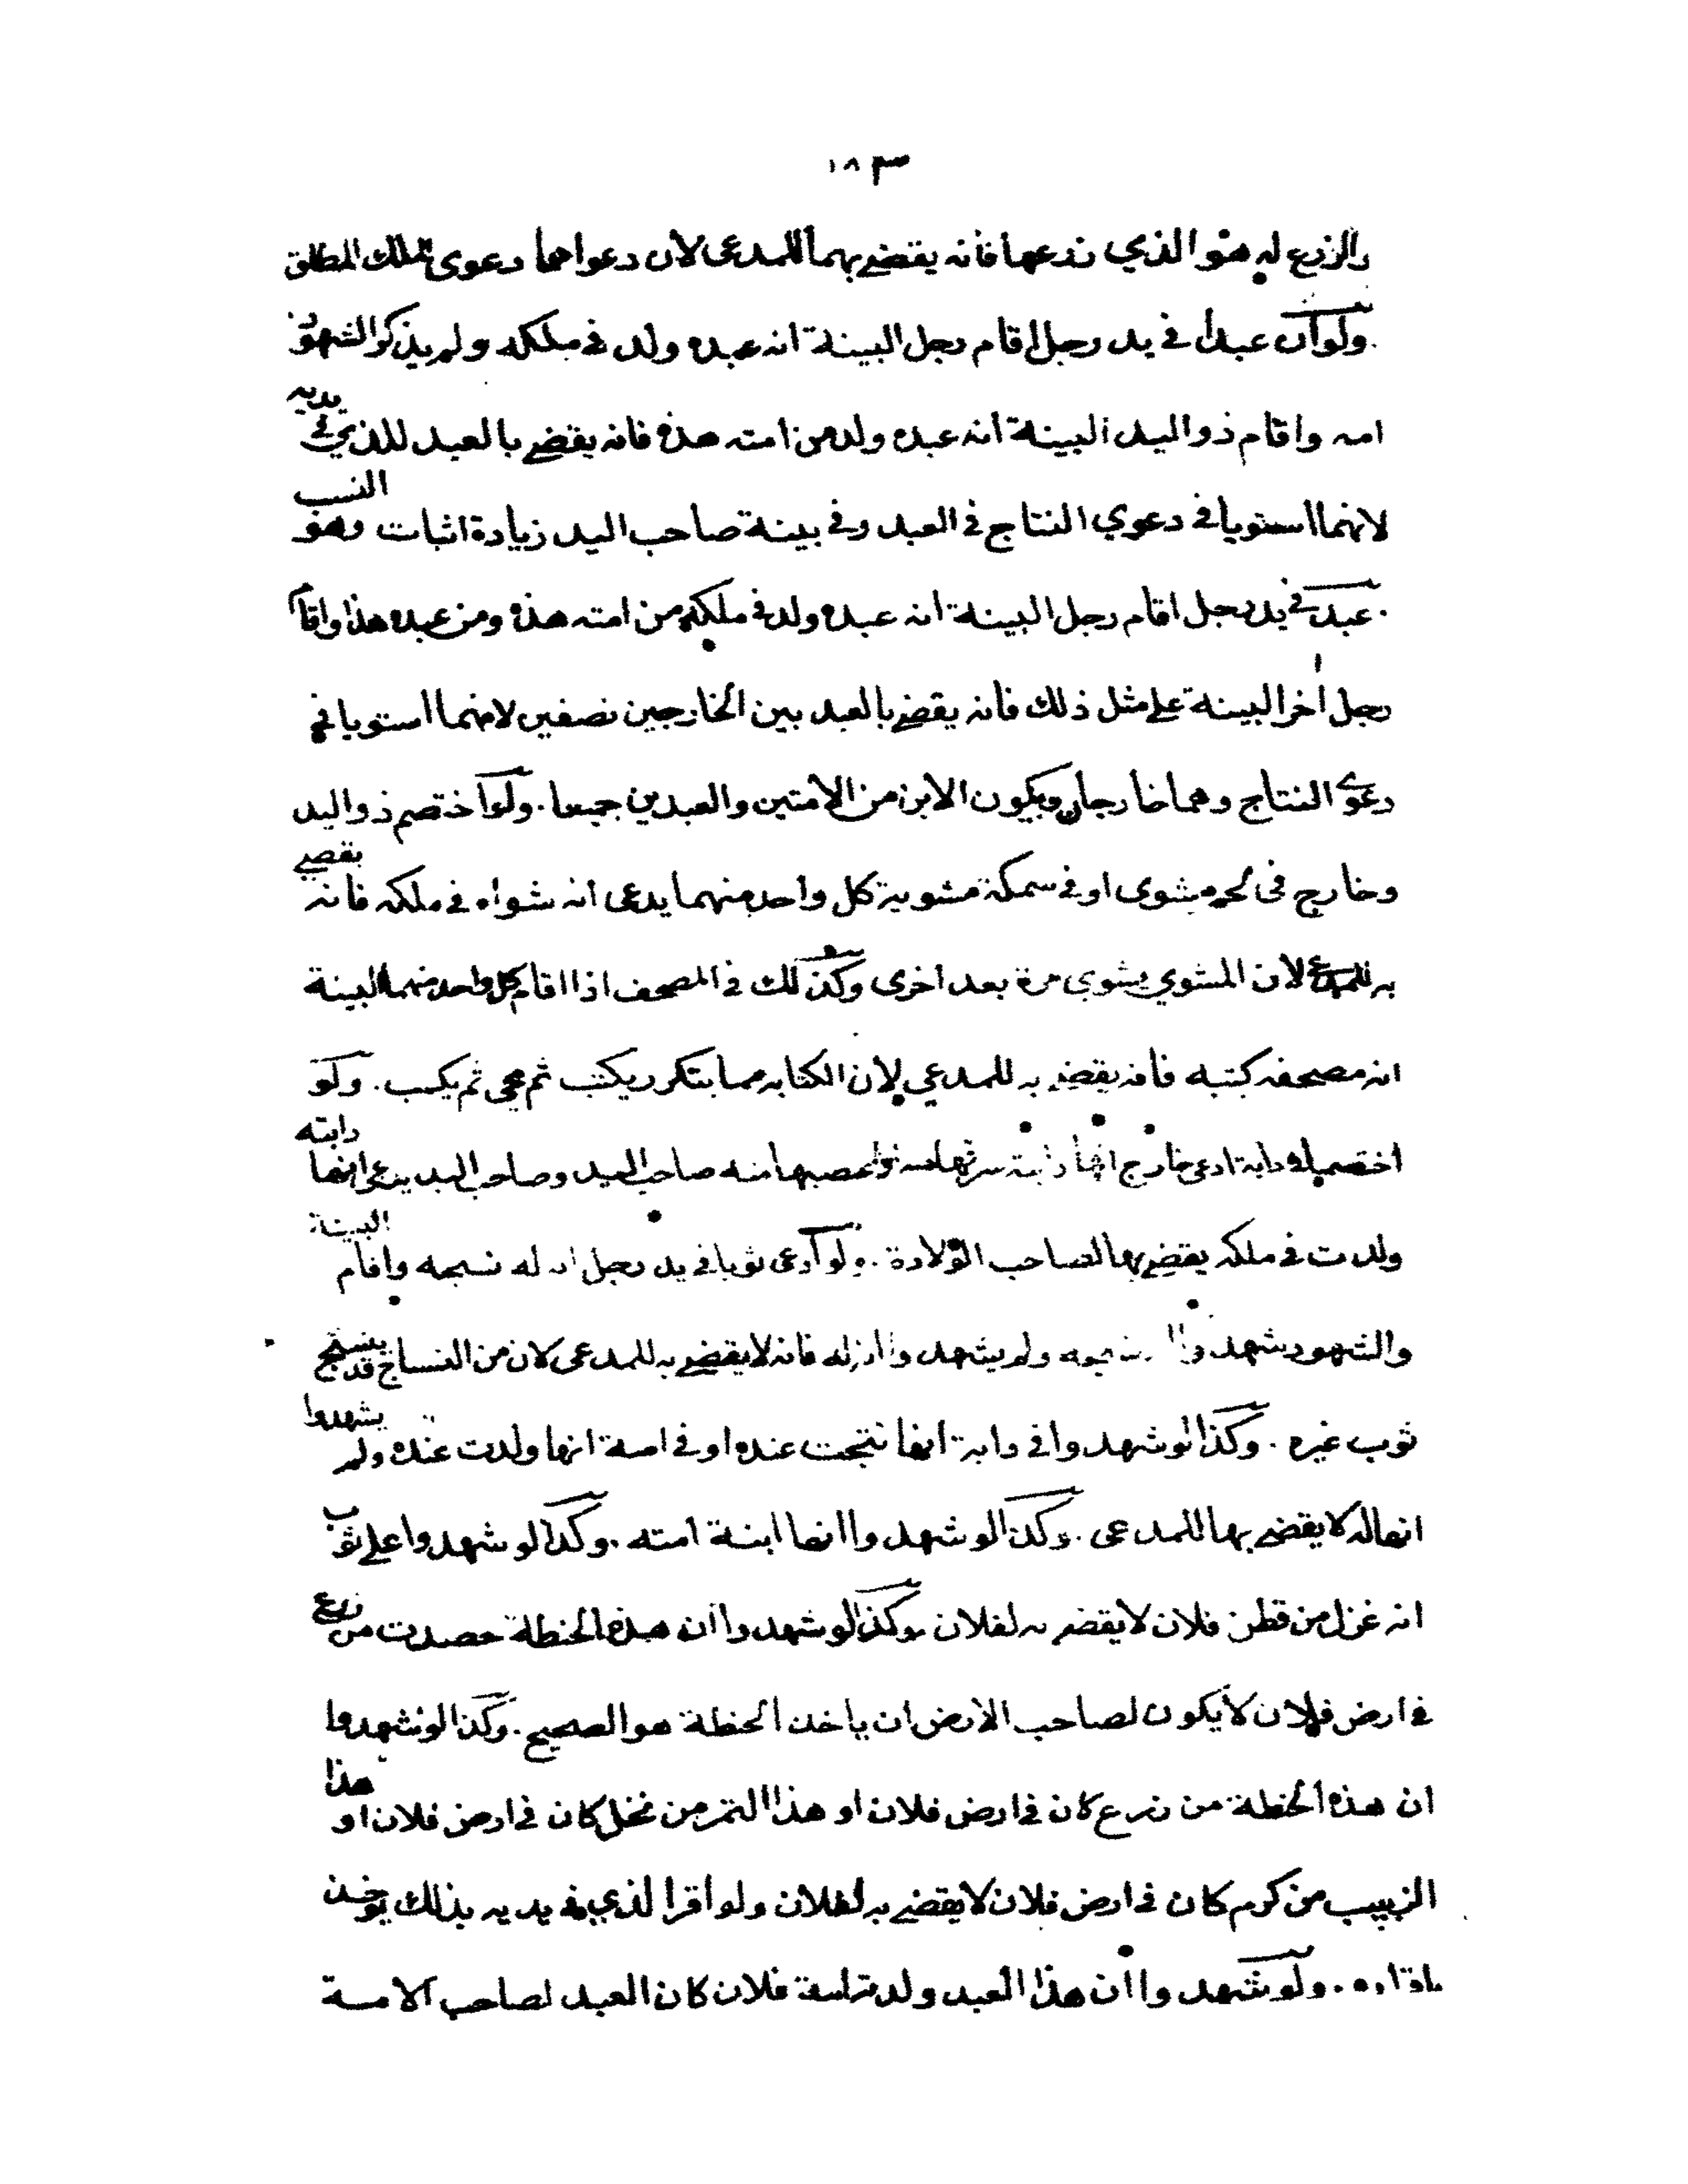 ١٨٣
والزرع له هو الذي زرعها فانه يقضي بهما للمدعى لان دعواهما دعوى الملك المطلق
ولو ان عبدا في يد رجل اقام رجل البينة انه عبده ولد في ملكه ولم يذكروا الشهود
امه واقام ذو اليد البينة انه عبده ولد من امته هذه فانه يقضي بالعبد للذي في يديه
لانهما استويا في دعوي النتاج في العبد وفي بينة صاحب اليد زيادة اثبات وهو النسب
عبد في يد رجل اقام رجل البينة انه عبده ولد في ملكه من امته هذه ومن عبده هذا واقام
رجل اخر البينة على مثل ذلك فانه يقضي بالعبد بين الخارجين نصفين لانهما استويا في
دعوى النتاج وهما خارجان ويكون الابن من الامتين والعبدين جميعا . ولو اختصم ذو اليد
وخارج في لحم مشوى او في سمكة مشوية كل واحد منهما يدعى انه شواه في ملكه فانه يقضي
به للمدعي لان المشوي يشوي مرة بعد اخرى وكذلك في المصحف اذا اقام كل واحد منهما البينة
انه مصحفه كتبه فانه يقضي به للمدعي لان الكتابه مما يتكرر يكتب ثم محى ثم يكتب . ولو
اختصما في دابة ادعى خارج انها دابته سرقها منه او غصبها منه صاحب اليد وصاحب اليد يدعى انها دابته
ولدت في ملكه يقضي بها لصاحب الولادة . ولو ادعى ثوبا في يد رجل انه له نسجه واقام البينة
والشهود شهدوا انه نسجه ولم يشهدوا انه له فانه لا يقضي به للمدعى لان من النساج قد ينسج
ثوب غيره . وكذا لو شهدوا في دابة انها نتجت عنده او في امة انها ولدت عنده ولم يشهدوا
انها له لا يقضي بها للمدعى . وكذا لو شهدوا انها ابنة امته . وكذا لو شهدوا على ثوب
انه غزل من قطن فلان لا يقضي به لفلان وكذا لو شهدوا ان هذه الحنطة حصدت من زرع
في ارض فلان لا يكون لصاحب الارض ان ياخذ الحنطة هو الصحيح . وكذا لو شهدوا
ان هذه الحنطة من زرع كان في ارض فلان او هذا التمر من نخل كان في ارض فلان او هذا
الزبيب من كرم كان في ارض فلان لا يقضي به لفلان ولو اقر الذي في يديه بذلك يوخذ
باقراره . ولو شهدوا ان هذا العبد ولدته امة فلان كان العبد لصاحب الامة